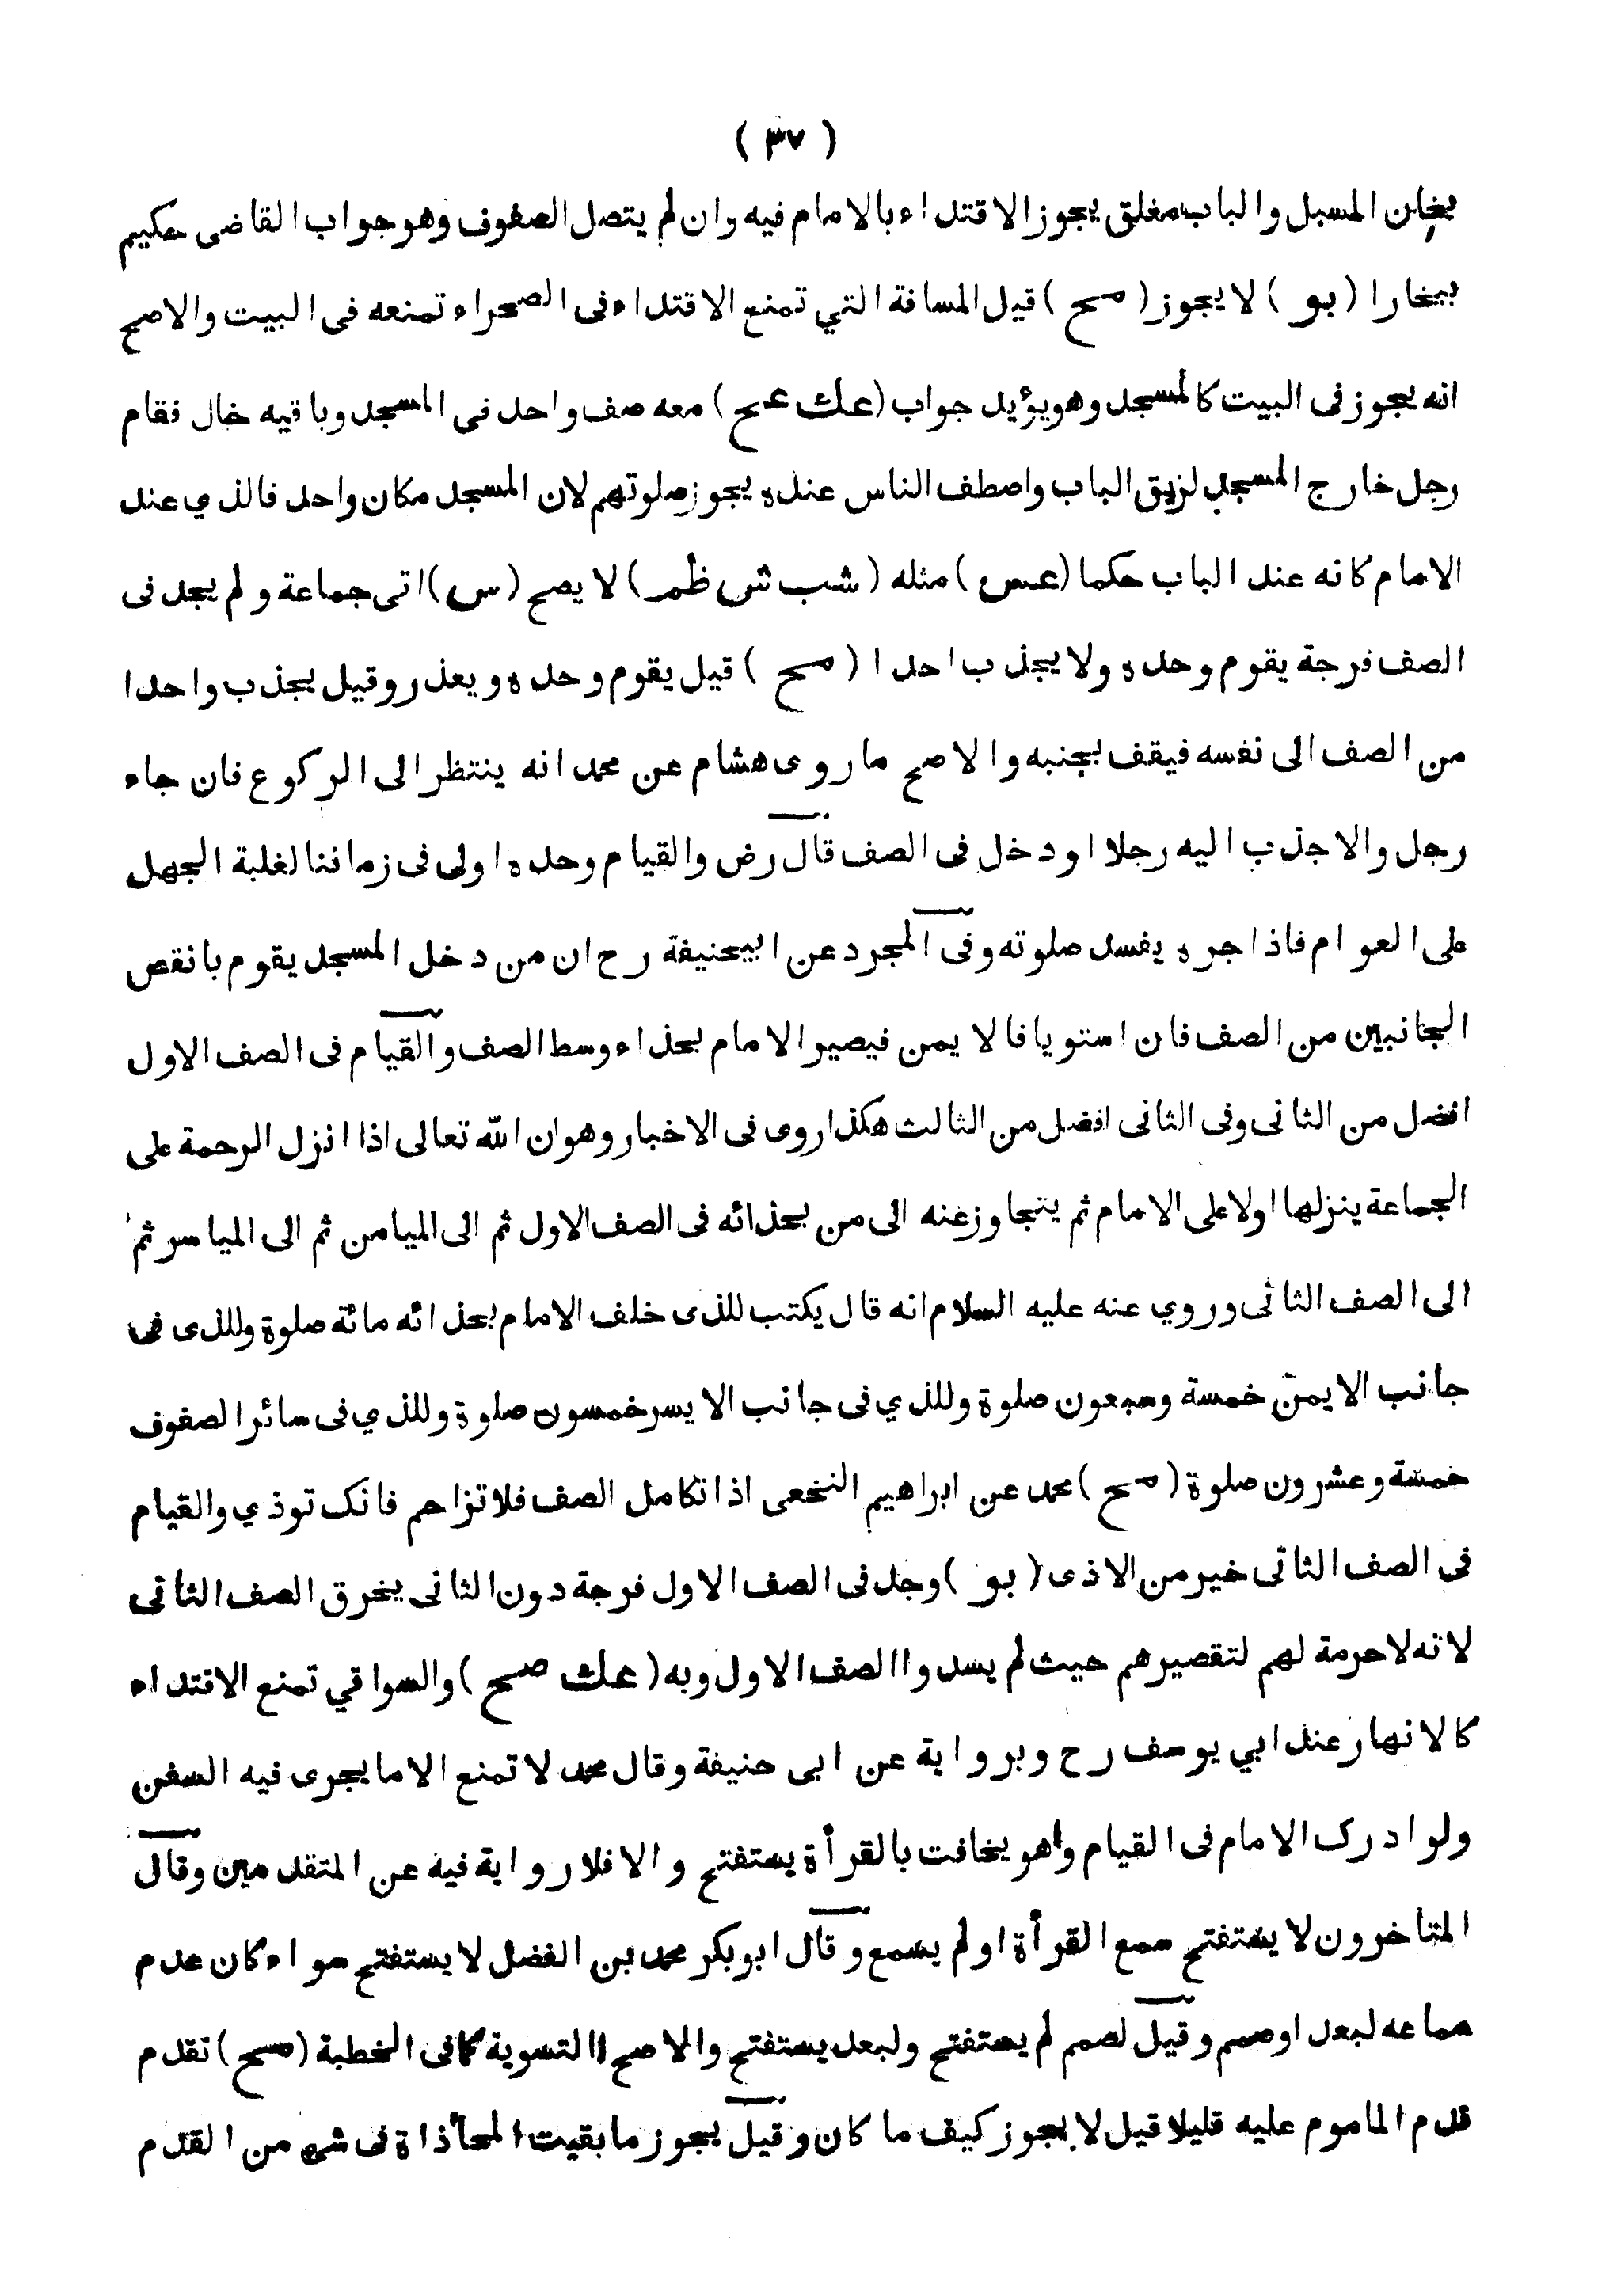 ( ٣٧ )
بخان المسبل والباب مغلق يجوز الاقتداء بالامام فيه وان لم يتصل الصفوف وهو جواب القاضى حكيم
ببخارا ( بو ) لا يجوز ( صح ) قيل المسافة التي تمنع الاقتداء فى الصحراء تمنعه فى البيت والاصح
انه يجوز فى البيت كالمسجد وهو يؤيد جواب ( عك عح ) معه صف واحد فى المسجد وباقيه خال فقام
رجل خارج المسجد لزيق الباب واصطف الناس عنده يجوز صلوتهم لان المسجد مكان واحد فالذي عند
الامام كانه عند الباب حكما ( عس ) مثله ( شب شس ظم ) لا يصح ( س ) اتى جماعة ولم يجد فى
الصف فرجة يقوم وحده ولا يجذب احدا ( صح ) قيل يقوم وحده ويعذر وقيل يجذب واحدا
من الصف الى نفسه فيقف بجنبه والاصح ما روى هشام عن محمد انه ينتظر الى الركوع فان جاء
رجل والا جذب اليه رجلا او دخل فى الصف قال رض والقيام وحده اولى فى زماننا لغلبة الجهل
على العوام فاذا جره يفسد صلوته وفى المجرد عن ابيحنيفة رح ان من دخل المسجد يقوم بانقص
الجانبين من الصف فان استويا فالايمن فيصير الامام بحذاء وسط الصف والقيام فى الصف الاول
افضل من الثانى وفى الثانى افضل من الثالث هكذا روى فى الاخبار وهو ان الله تعالى اذا انزل الرحمة على
الجماعة ينزلها اولا على الامام ثم يتجاوز عنه الى من بحذائه فى الصف الاول ثم الى الميامن ثم الى المياسر ثم
الى الصف الثانى وروي عنه عليه السلام انه قال يكتب للذى خلف الامام بحذائه مائة صلوة وللذى فى
جانب الايمن خمسة وسبعون صلوة وللذي فى جانب الايسر خمسون صلوة وللذي فى سائر الصفوف
خمسة وعشرون صلوة ( صح ) محمد عن ابراهيم النخعى اذا تكامل الصف فلا تزاحم فانك توذي والقيام
فى الصف الثانى خير من الاذى ( بو ) وجد فى الصف الاول فرجة دون الثانى يخرق الصف الثانى
لانه لا حرمة لهم لتقصيرهم حيث لم يسدوا الصف الاول وبه ( عك صح ) والسواقي تمنع الاقتداء
كالانهار عند ابي يوسف رح وبرواية عن ابى حنيفة وقال محمد لا تمنع الا ما يجرى فيه السفن
ولو ادرك الامام فى القيام وهو يخافت بالقرأة يستفتح والا فلا رواية فيه عن المتقدمين وقال
المتاخرون لا يستفتح سمع القرأة او لم يسمع وقال ابو بكر محمد بن الفضل لا يستفتح سواء كان عدم
سماعه لبعد او صمم وقيل لصمم لم يستفتح ولبعد يستفتح والاصح التسوية كما فى الخطبة ( صح ) تقدم
قدم الماموم عليه قليلا قيل لا يجوز كيف ما كان وقيل يجوز ما بقيت المحاذاة فى شئ من القدم